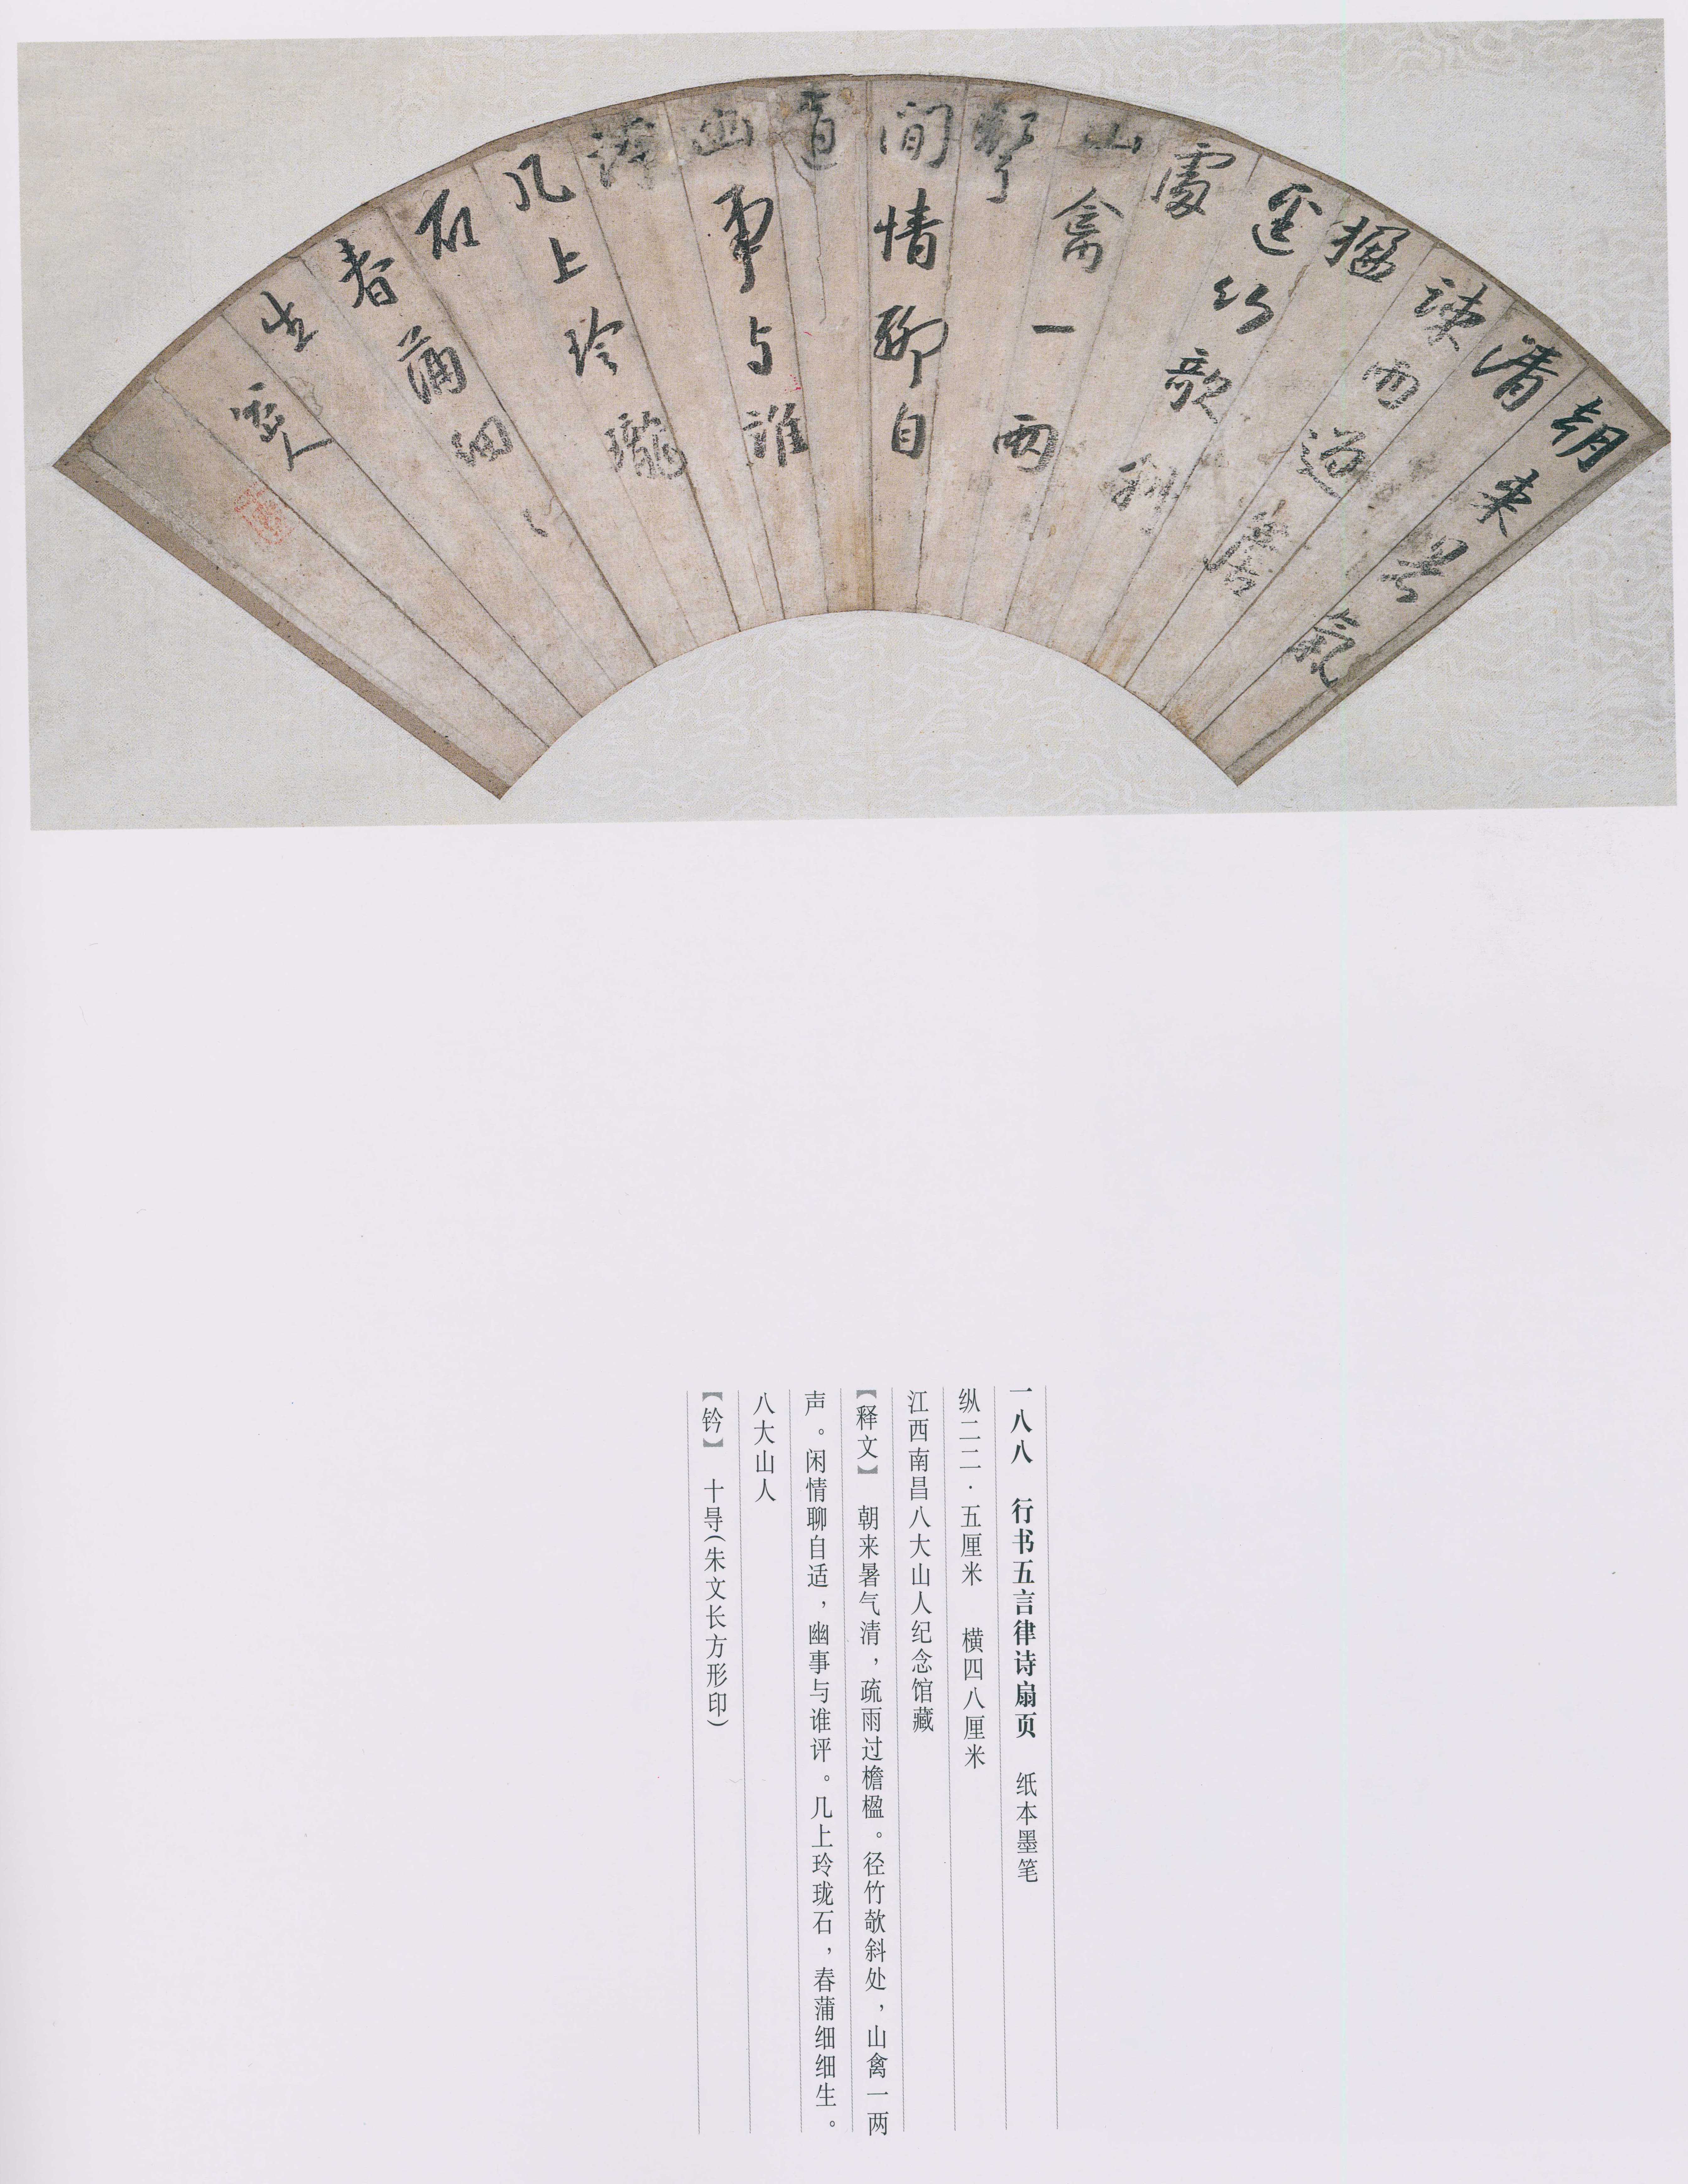 朝来暑氣
清
疎雨過簷
楹
逕竹欹斜
處
山禽一兩
聲
閒情聊自
適
幽事与誰
評
几上玲瓏
石
春蒲細〻
生
八大山人
一八八 行书五言律诗扇页 纸本墨笔
纵二二·五厘米 横四八厘米
江西南昌八大山人纪念馆藏
【释文】 朝来暑气清，疏雨过檐楹。径竹欹斜处，山禽一两
声。闲情聊自适，幽事与谁评。几上玲珑石，春蒲细细生。
八大山人
【钤】 十㝵（朱文长方形印）